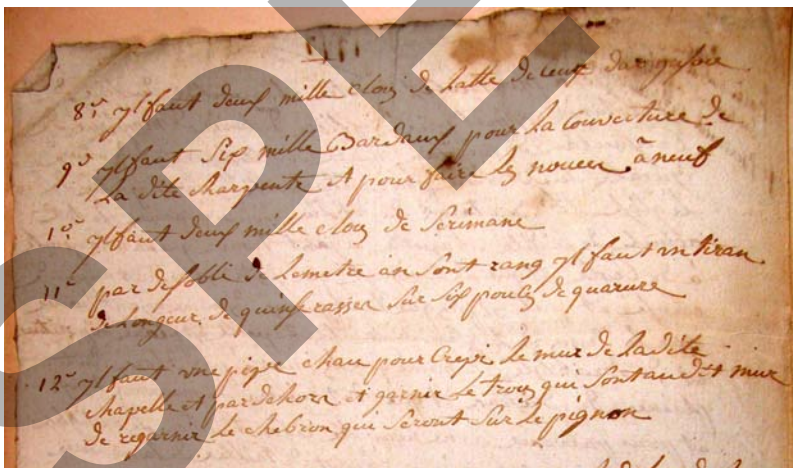 8º ylfaut deux mille clou de latte de ceux
9º ylfaut six mille Bardaux pour la couverture de
la dite charpente et pour faire les nouees a neuf
10º ylfaut deux mille clou de Serimane
11º par desoblie de lemetre an sont rang yl faut un tiran
de longeur de quinse rasses sur six pouces de quarure
12º ylfaut une pigee chau pour Crepi le mur de ladite
chapelle et par dehors et garnir le trous qui sont au dit mur
de regarnir le chebron qui seront sur le pignon
SPE